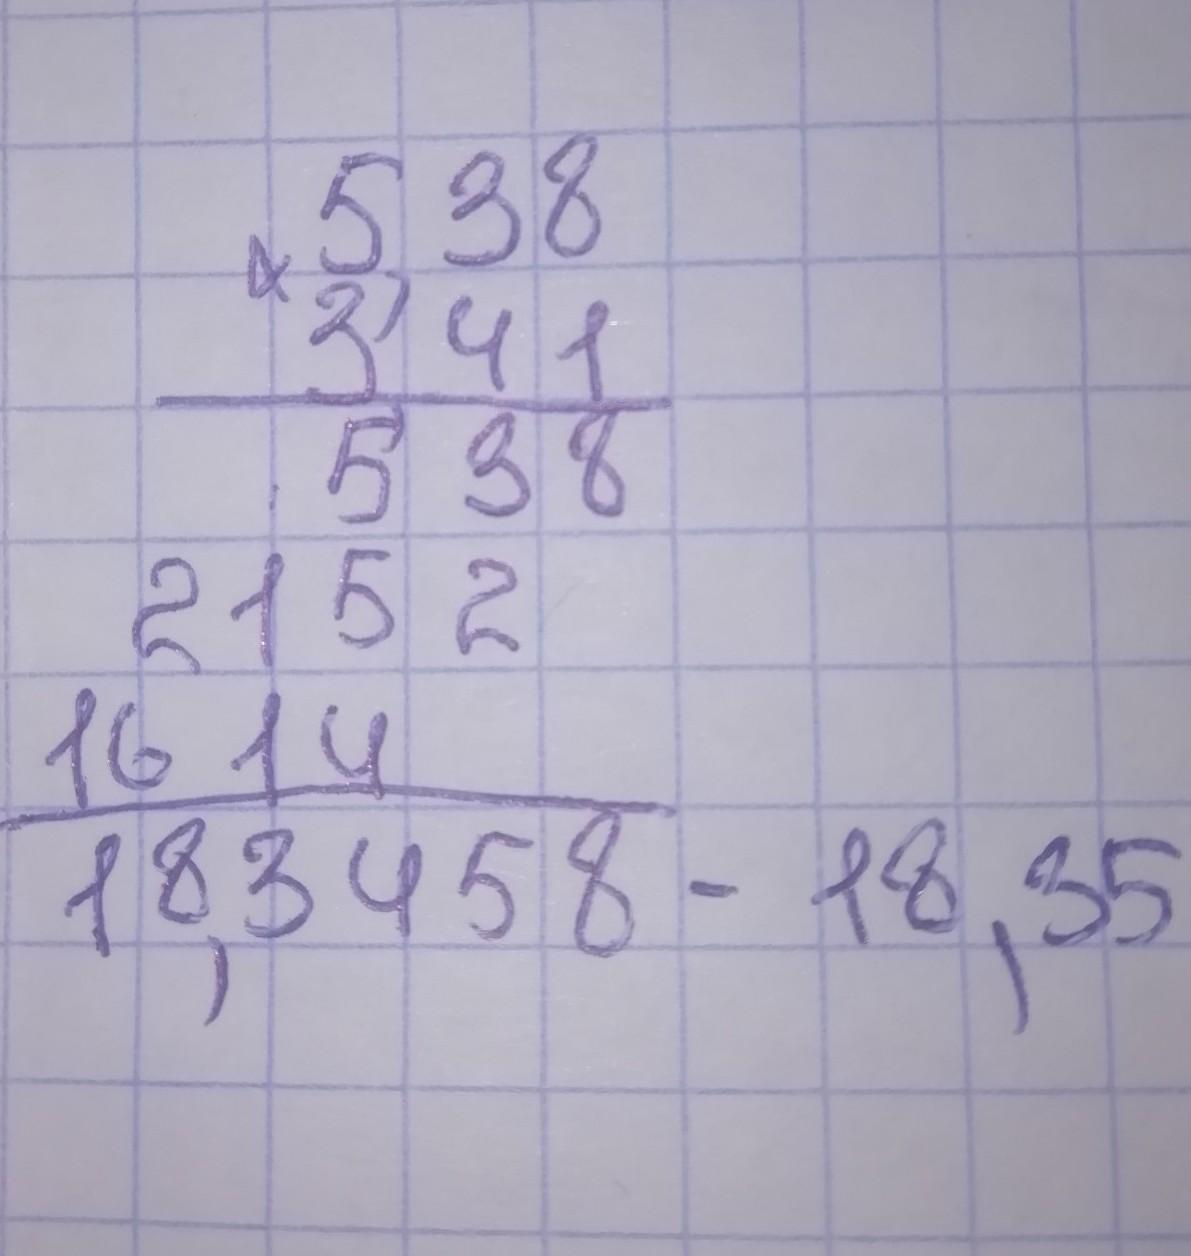 5,38
× 3,41
538
2152
1614
18,3458 - 18,35